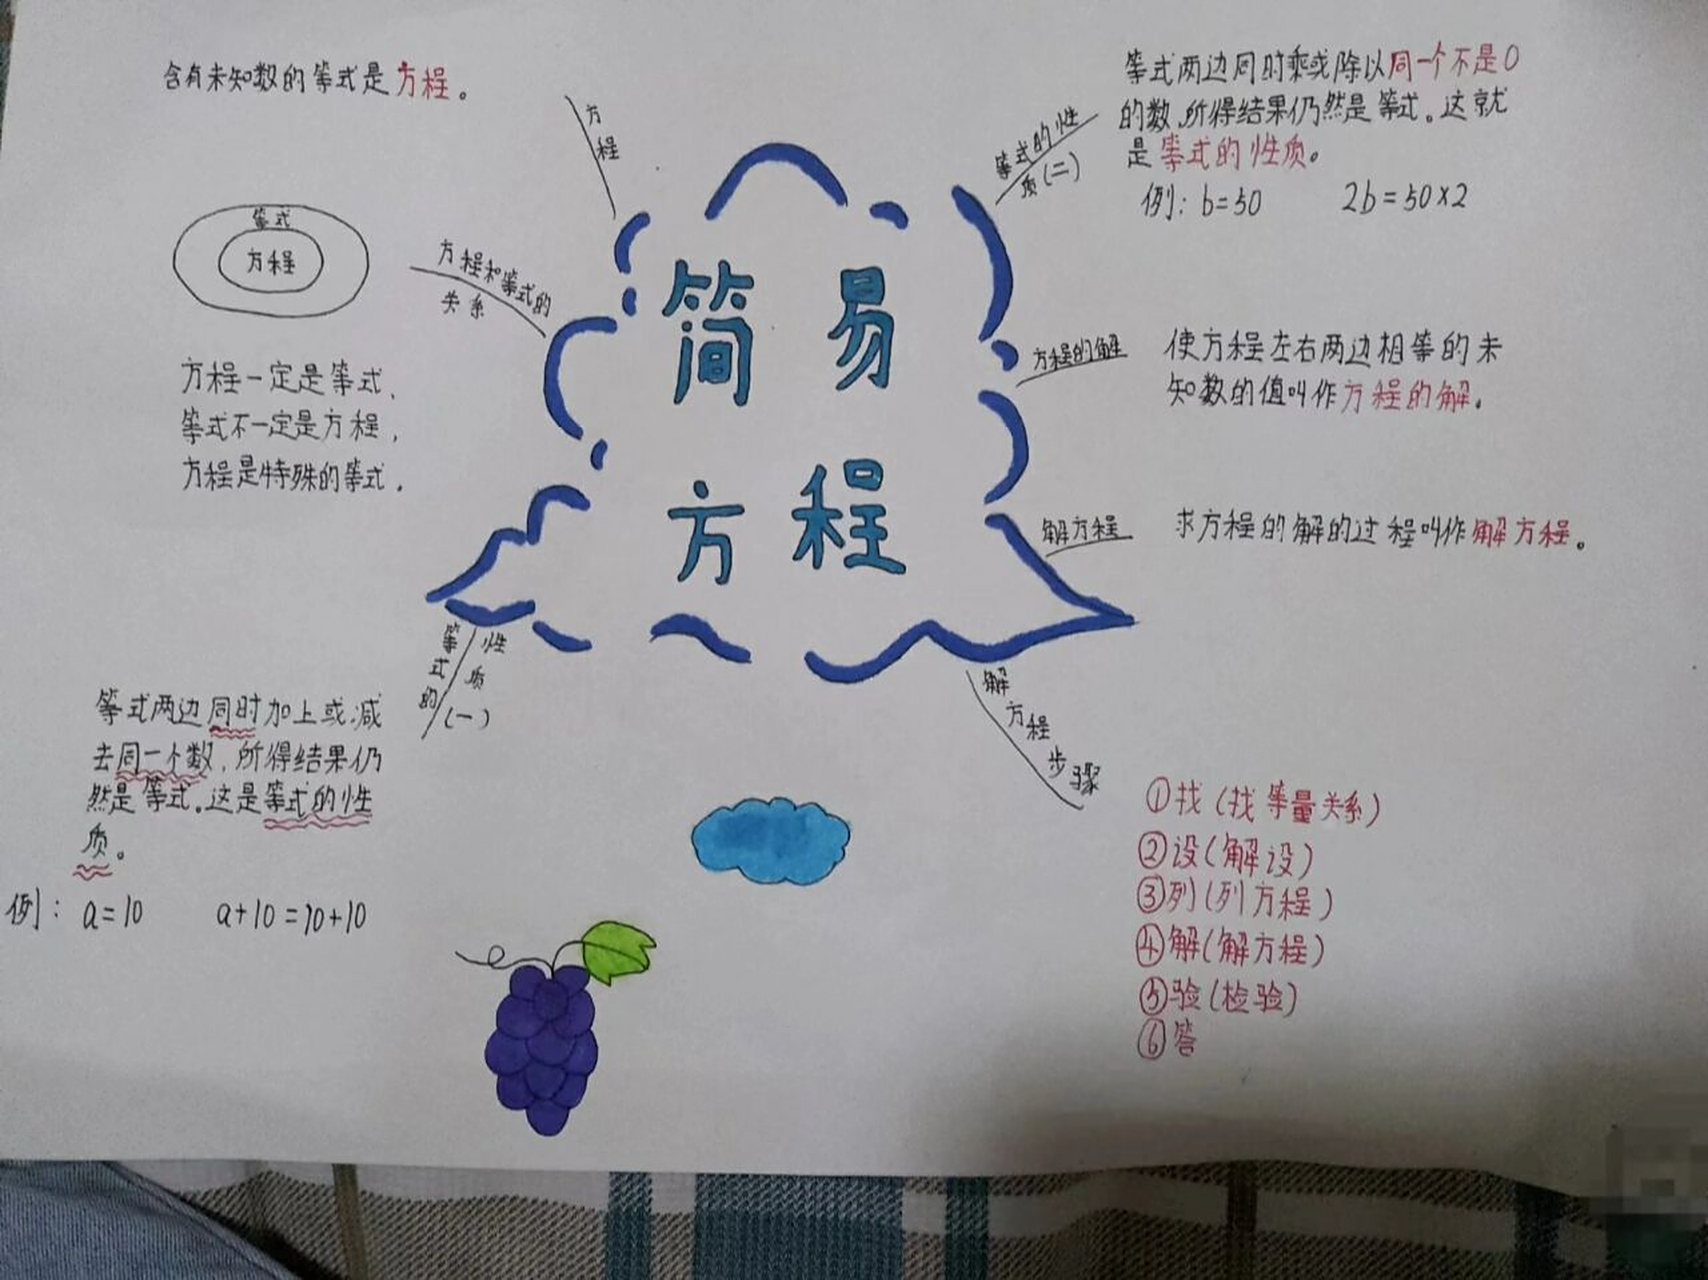 简易
方程
方程
含有未知数的等式是方程。
方程和等式的
关系
等式
方程
方程一定是等式，
等式不一定是方程，
方程是特殊的等式．
等式的性质（一）
等式两边同时加上或减
去同一个数，所得结果仍
然是等式。这是等式的性
质。
例：a=10 a+10=10+10
等式的性
质（二）
等式两边同时乘或除以同一个不是0
的数，所得结果仍然是等式。这就
是等式的性质。
例：b=50 2b=50×2
方程的解
使方程左右两边相等的未
知数的值叫作方程的解．
解方程
求方程的解的过程叫作解方程。
解方程步骤
①找（找等量关系）
②设（解设）
③列（列方程）
④解（解方程）
⑤验（检验）
⑥答